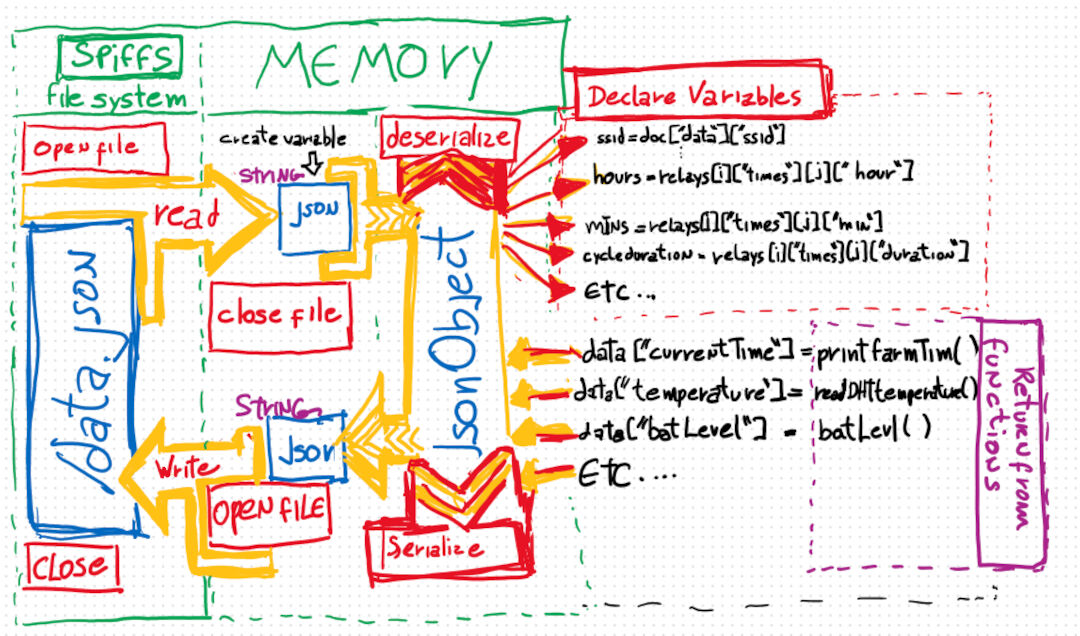 SPiffS
file system
MEMORY
Declare Variables
open file
create variable
STRING
json
deserialize
read
ssid=doc["data"]["ssid"]
hours=relays[i]["times"][j]["hour"]
MINS=relays[i]["times"][j]["min"]
cycleduration=relays[i]["times"][j]["duration"]
ETC ...
/data.json
close file
JsonObject
data["currentTime"]=printfarmTim()
data["temperature"]=readDHTtemperature()
data["batLevel"] = batLevl()
ETC ....
Return from
functions
STRING
Json
write
OPEN FILE
Serialize
CLOSE